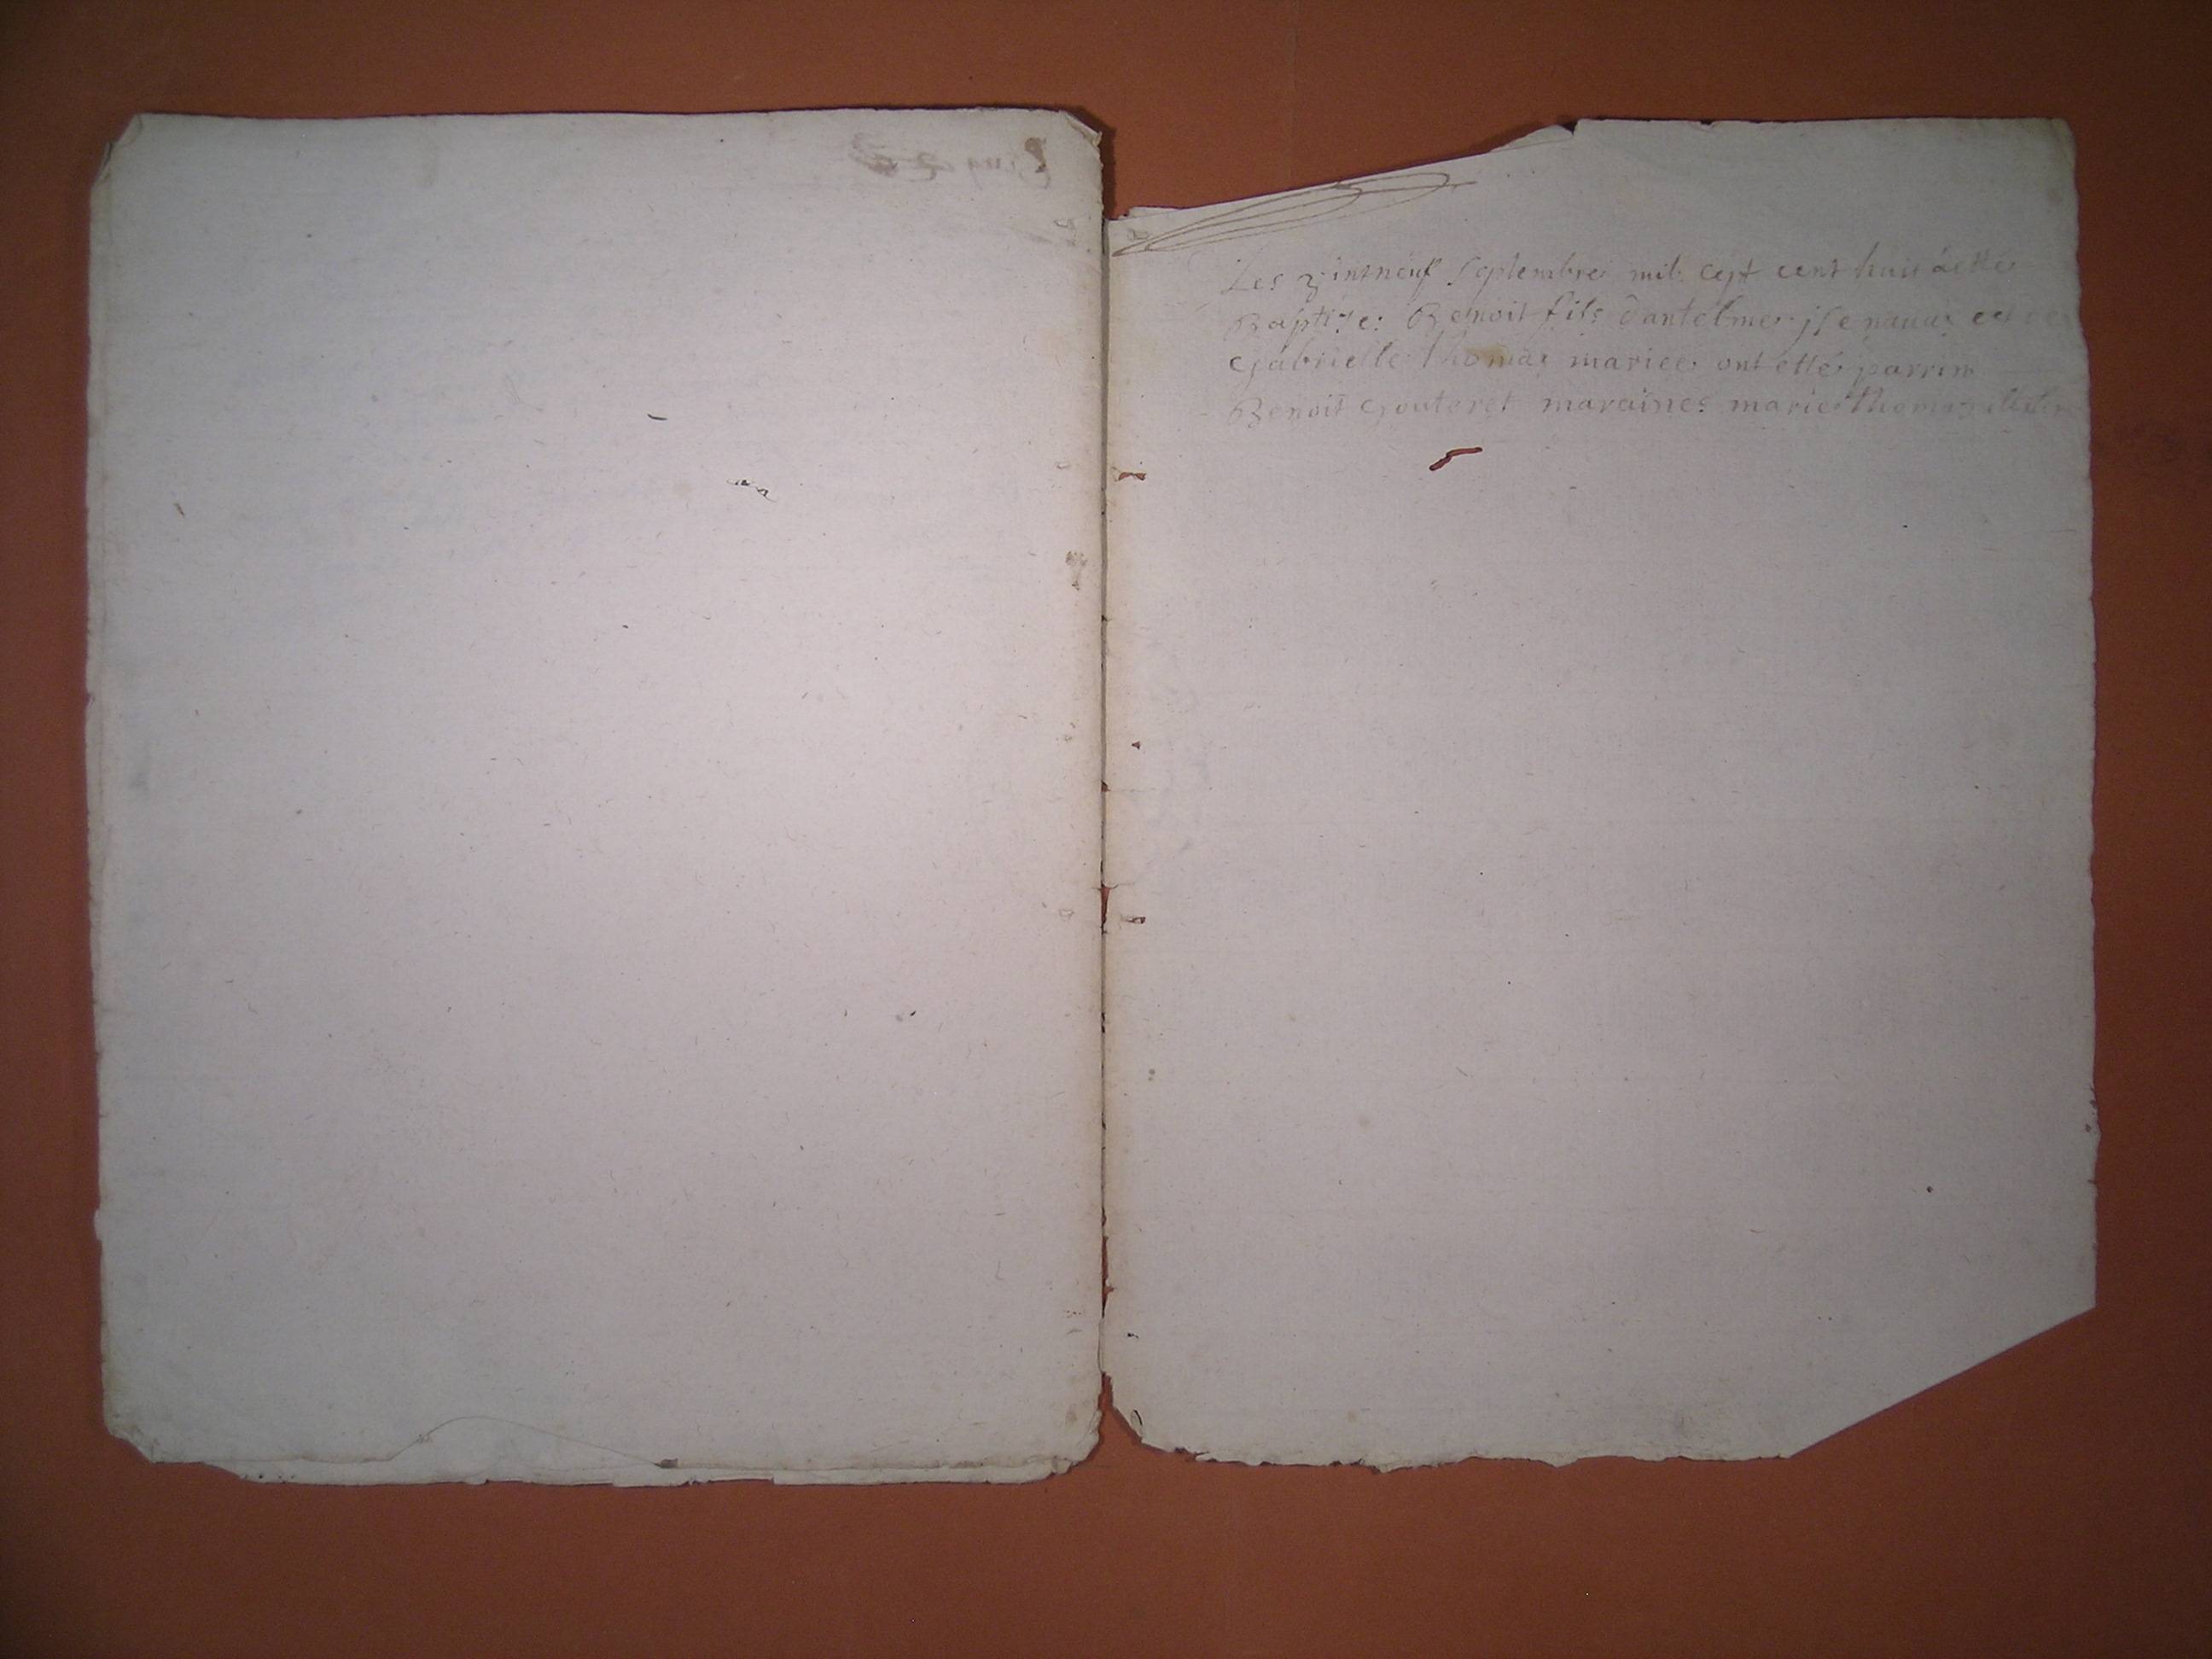 Les vintneuf septembre mil cept cent huit a etté
Baptise: Benoit fils dantelme jsenauai et de
Gabrielle thomas mariee ont etté parrin
Benoit Gouteret maraine marie thomas